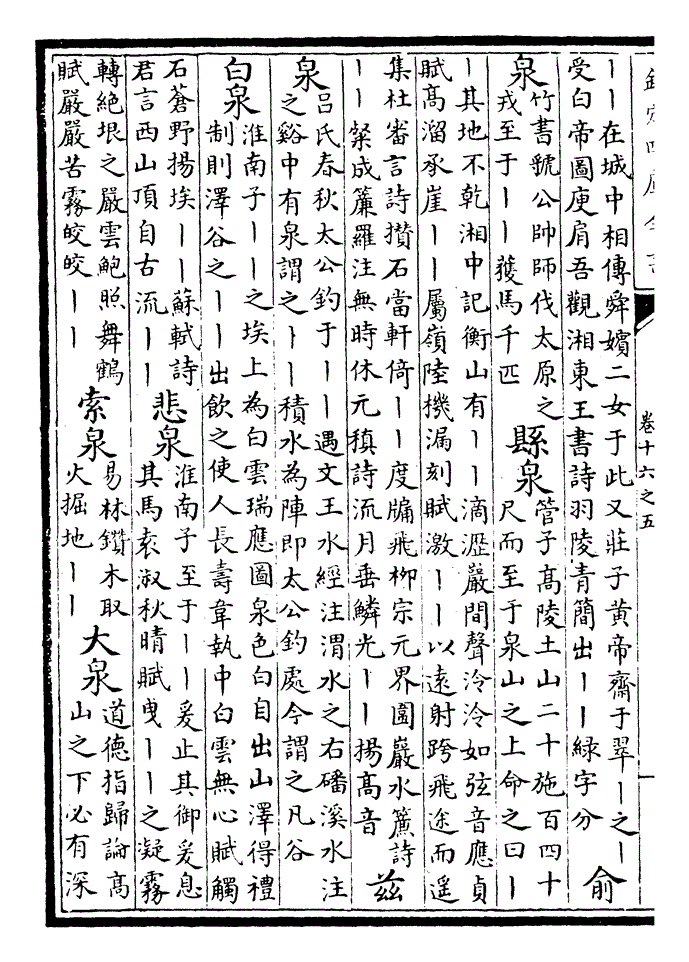 欽定四庫全書
卷十六之五
丨丨在城中相傳舜嬪二女于此又莊子黃帝齋于翠丨之丨
受白帝圖庾肩吾觀湘東王書詩羽陵青簡出丨丨緑字分
俞
泉
竹書號公帥師伐太原之
戎至于丨丨獲馬千匹
縣泉
管子髙陵土山二十施百四十
尺而至于泉山之上命之曰丨
丨其地不乾湘中記衡山有丨丨滴瀝巖間聲泠泠如弦音應貞
賦髙溜承崖丨丨屬嶺陸機漏刻賦激丨丨以遠射跨飛途而遥
集杜審言詩攢石當軒倚丨丨度牖飛柳宗元界圍巖水簾詩
丨丨粲成簾羅注無時休元稹詩流月垂鱗光丨丨揚髙音
兹
泉
吕氏春秋太公釣于丨丨遇文王水經注渭水之右磻溪水注
之谿中有泉謂之丨丨積水為陣即太公釣處今謂之凡谷
白泉
淮南子丨丨之埃上為白雲瑞應圖泉色白自出山澤得禮
制則澤谷之丨丨出飲之使人長壽韋執中白雲無心賦觸
石蒼野揚埃丨丨蘇軾詩
君言西山頂自古流丨丨
悲泉
淮南子至于丨丨爰止其御爰息
其馬袁淑秋晴賦曳丨丨之凝霧
轉絶垠之嚴雲鮑照舞鶴
賦嚴嚴苦霧皎皎丨丨
索泉
易林鑽木取
火掘地丨丨
大泉
道德指歸論髙
山之下必有深